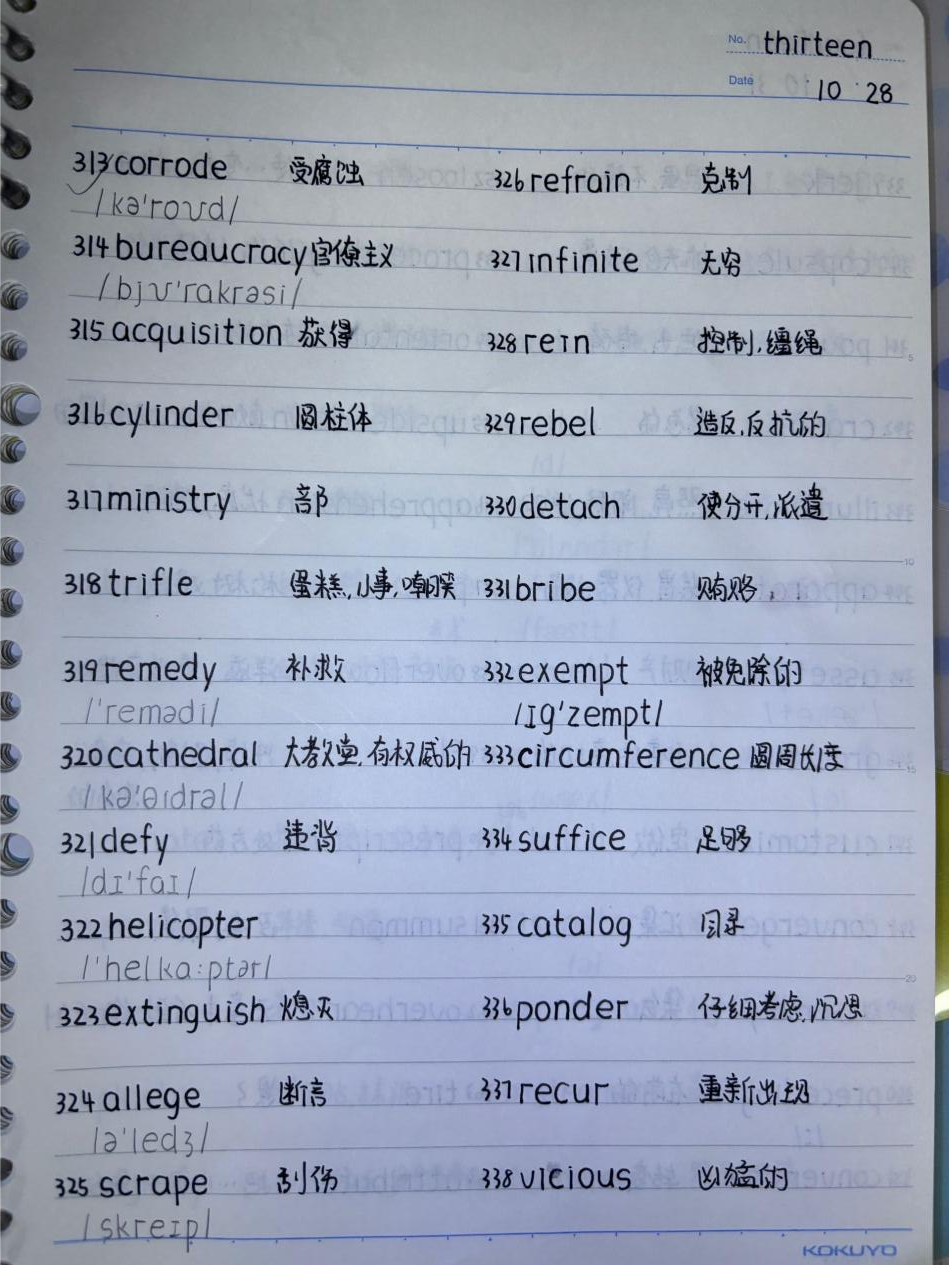 No. thirteen
Date 10 28
313 corrode 受腐蚀 326 refrain 克制
/kə'roʊd/
314 bureaucracy 官僚主义 327 infinite 无穷
/bjʊ'rakrəsi/
315 acquisition 获得 328 rein 控制,缰绳
316 cylinder 圆柱体 329 rebel 造反,反抗的
317 ministry 部 330 detach 使分开,派遣
318 trifle 蛋糕,小事,嘲笑 331 bribe 贿赂
319 remedy 补救 332 exempt 被免除的
/'remədi/ /ɪg'zempt/
320 cathedral 大教堂,有权威的 333 circumference 圆周长度
/kə'θɪdrəl/
321 defy 违背 334 suffice 足够
/dɪ'faɪ/
322 helicopter 335 catalog 目录
/'helka:ptər/
323 extinguish 熄灭 336 ponder 仔细考虑,沉思
324 allege 断言 337 recur 重新出现
/ə'ledʒ/
325 scrape 刮伤 338 vicious 凶猛的
/skreɪp/
KOKUYO